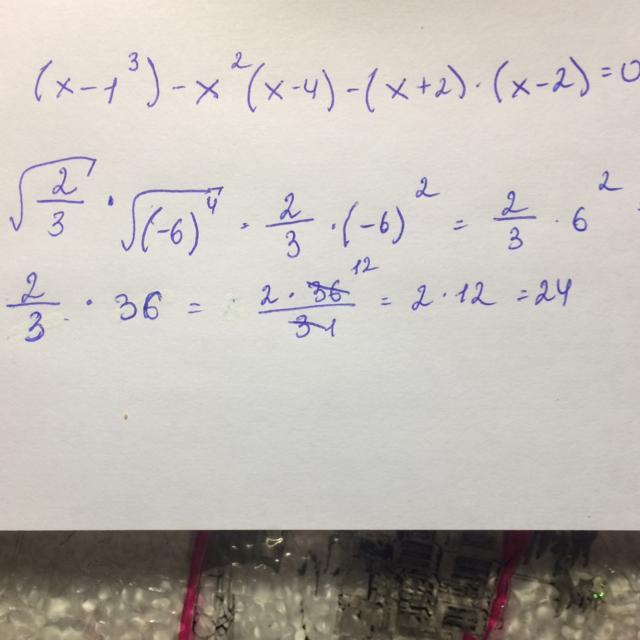 (x-1³)-x²(x-4)-(x+2)·(x-2)=0
√(2/3) · √((-6)⁴) = 2/3 · (-6)² = 2/3 · 6²
2/3 · 36 = (2 · 36 12)/(3 1) = 2 · 12 = 24